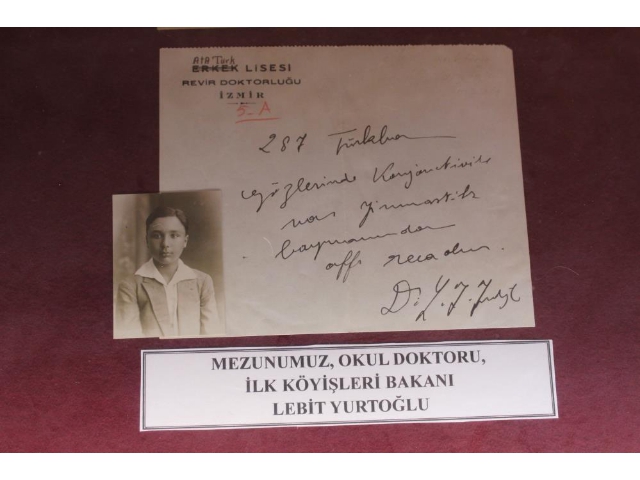 Ata Türk
ERKEK LİSESİ
REVİR DOKTORLUĞU
İZMİR
5-A
287 Türkkan
gözlerinde Konjonktivite
var jimnastik
bayramından
affı rica olunur.
Dr.
MEZUNUMUZ, OKUL DOKTORU,
İLK KÖYİŞLERİ BAKANI
LEBİT YURTOĞLU